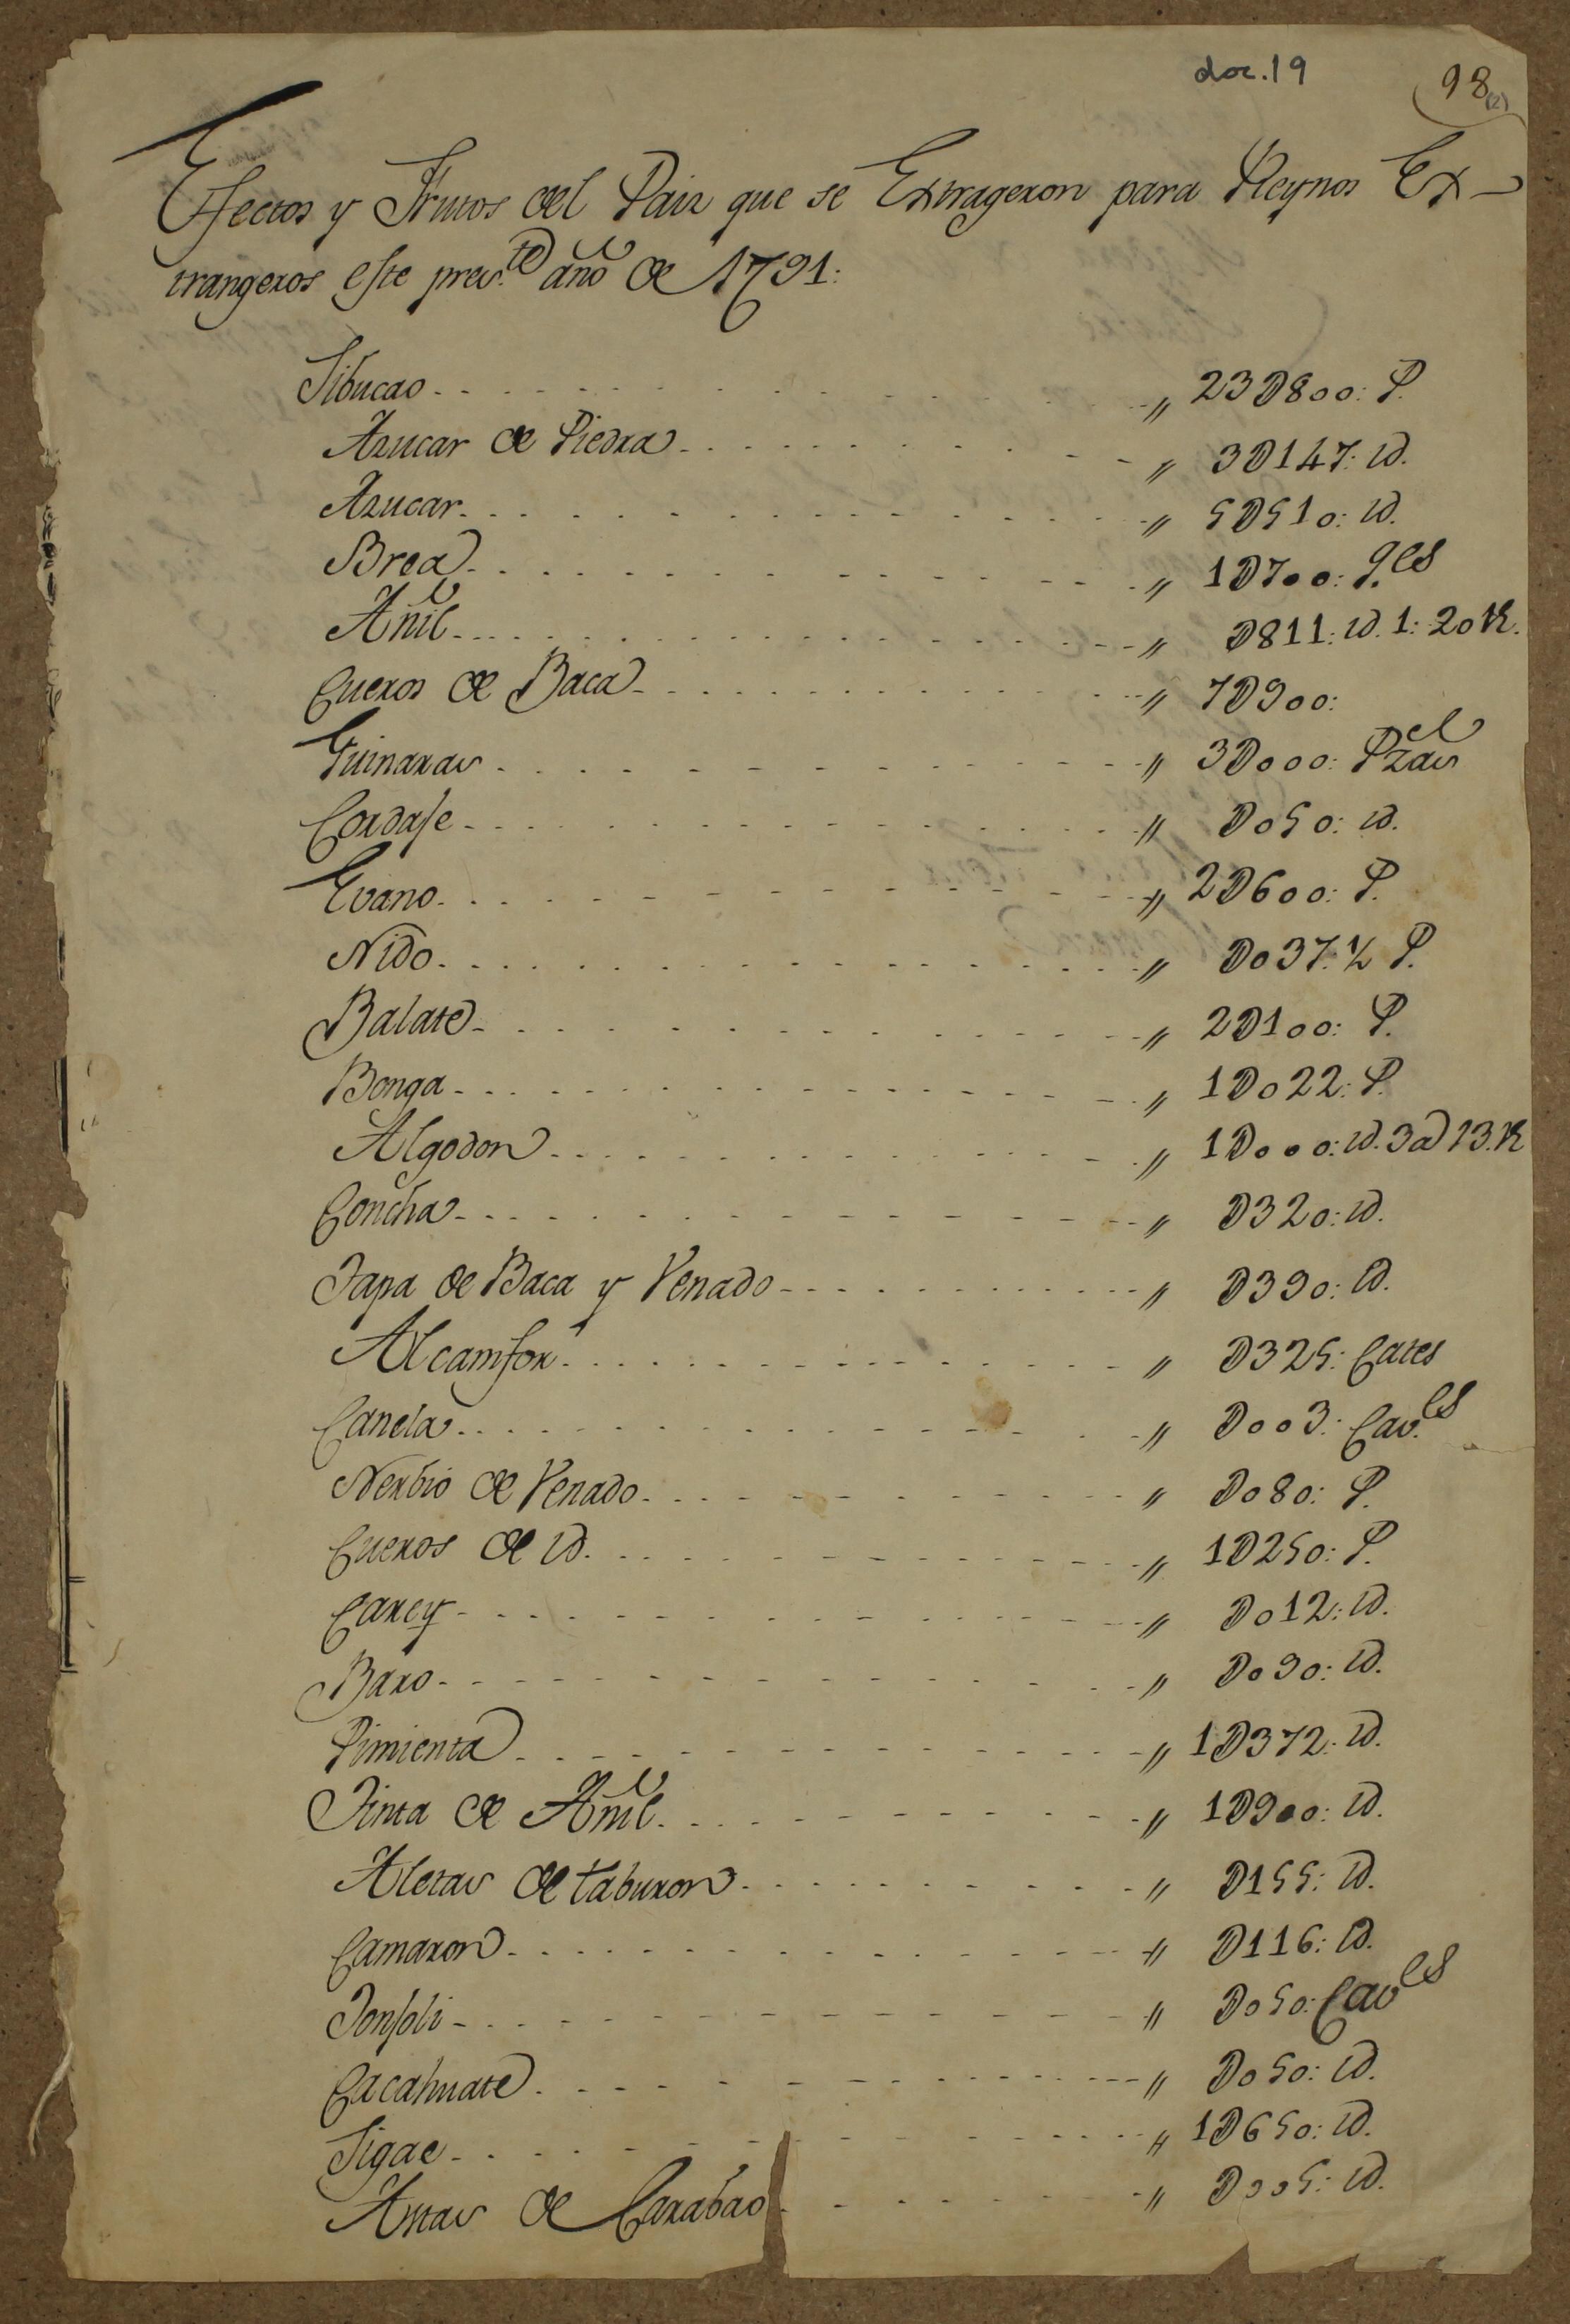 doc. 19
98 (2)
Efectos y Frutos del Pais que se Extrageron para Reynos Ex-
trangeros este pres.te año de 1791:
Sibucao - - - " 23D800: P.
Azucar de Piedra - - - " 3D147: id.
Azucar - - - " 5D510: id.
Brea - - - " 1D700: q.les
Añil - - - " D811: id. 1: 20 R.
Cueros de Baca - - - " 7D900:
Guinaras - - - " 3D000: Pzas
Cordaje - - - " D050: id.
Evano - - - " 2D600: P.
Nido - - - " D037: ½ P.
Balate - - - " 2D100: P.
Bonga - - - " 1D022: P.
Algodon - - - " 1D000: id. 3a 13. R
Concha - - - " D320: id.
Tapa de Baca y Venado - - - " D390: id.
Alcamfor - - - " D325: Cates
Canela - - - " D003: Cav.es
Nerbio de Venado - - - " D080: P.
Cueros de id. - - - " 1D250: P.
Carey - - - " D012: id.
Baxo - - - " D090: id.
Pimienta - - - " 1D372: id.
Tinta de Añil - - - " 1D900: id.
Aletas de taburon - - - " D155: id.
Camaron - - - " D116: id.
Tonsoli - - - " D050: Cav.es
Cacahuate - - - " D050: id.
Sigae - - - " 1D650: id.
Astas de Carabao - - - " D005: id.